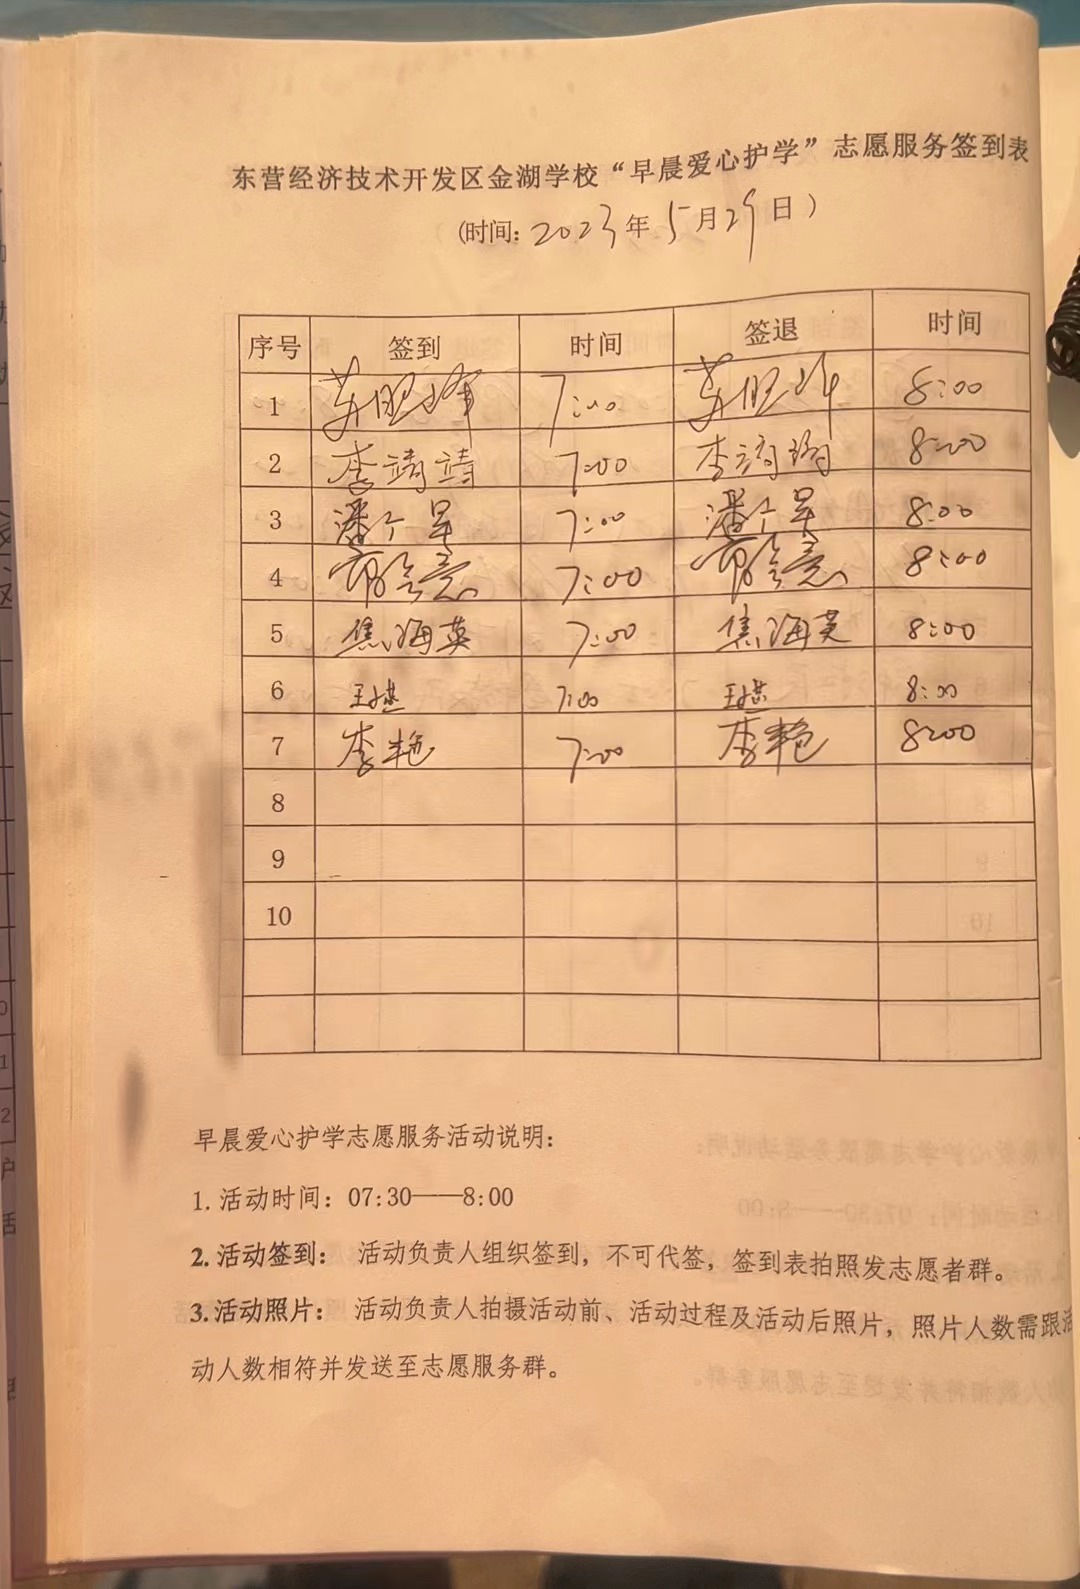 东营经济技术开发区金湖学校“早晨爱心护学”志愿服务签到表
(时间: 2023年5月29日)
序号 签到 时间 签退 时间
1 7:00 8:00
2 李靖靖 7:00 李靖 8:00
3 潘 7:00 潘 8:00
4 7:00 8:00
5 焦海英 7:00 焦海英 8:00
6 王 7:00 王 8:00
7 李艳 7:00 李艳 8:00
8
9
10
早晨爱心护学志愿服务活动说明:
1. 活动时间: 07:30——8:00
2. 活动签到: 活动负责人组织签到, 不可代签, 签到表拍照发志愿者群。
3. 活动照片: 活动负责人拍摄活动前、活动过程及活动后照片, 照片人数需跟活
动人数相符并发送至志愿服务群。